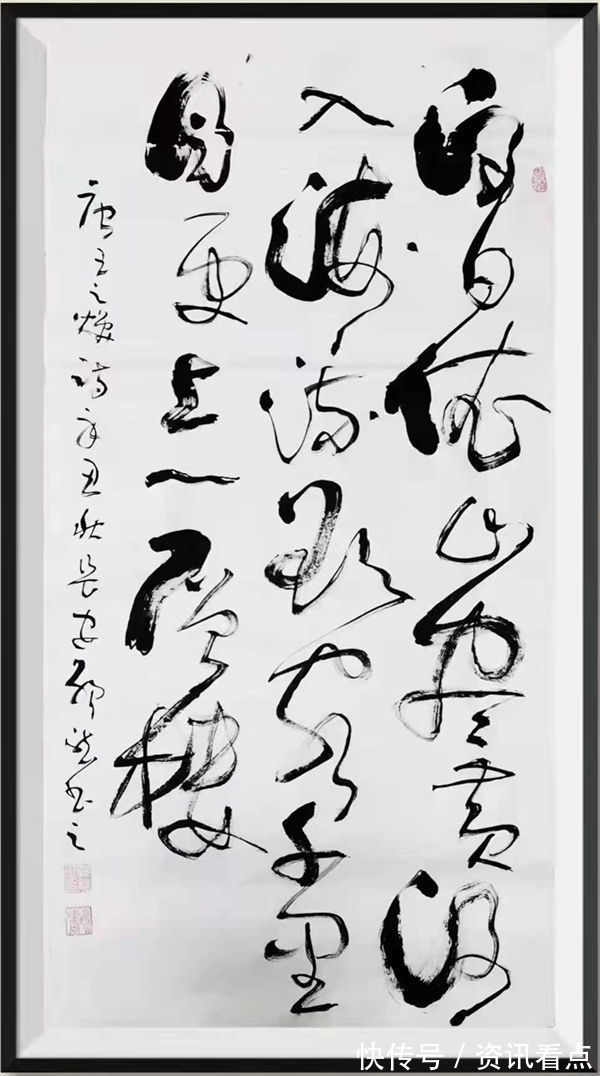 白日依山尽黄河
入海流欲穷千里
目更上一层楼
唐王之焕诗辛丑秋吴书之
快传号 / 资讯看点